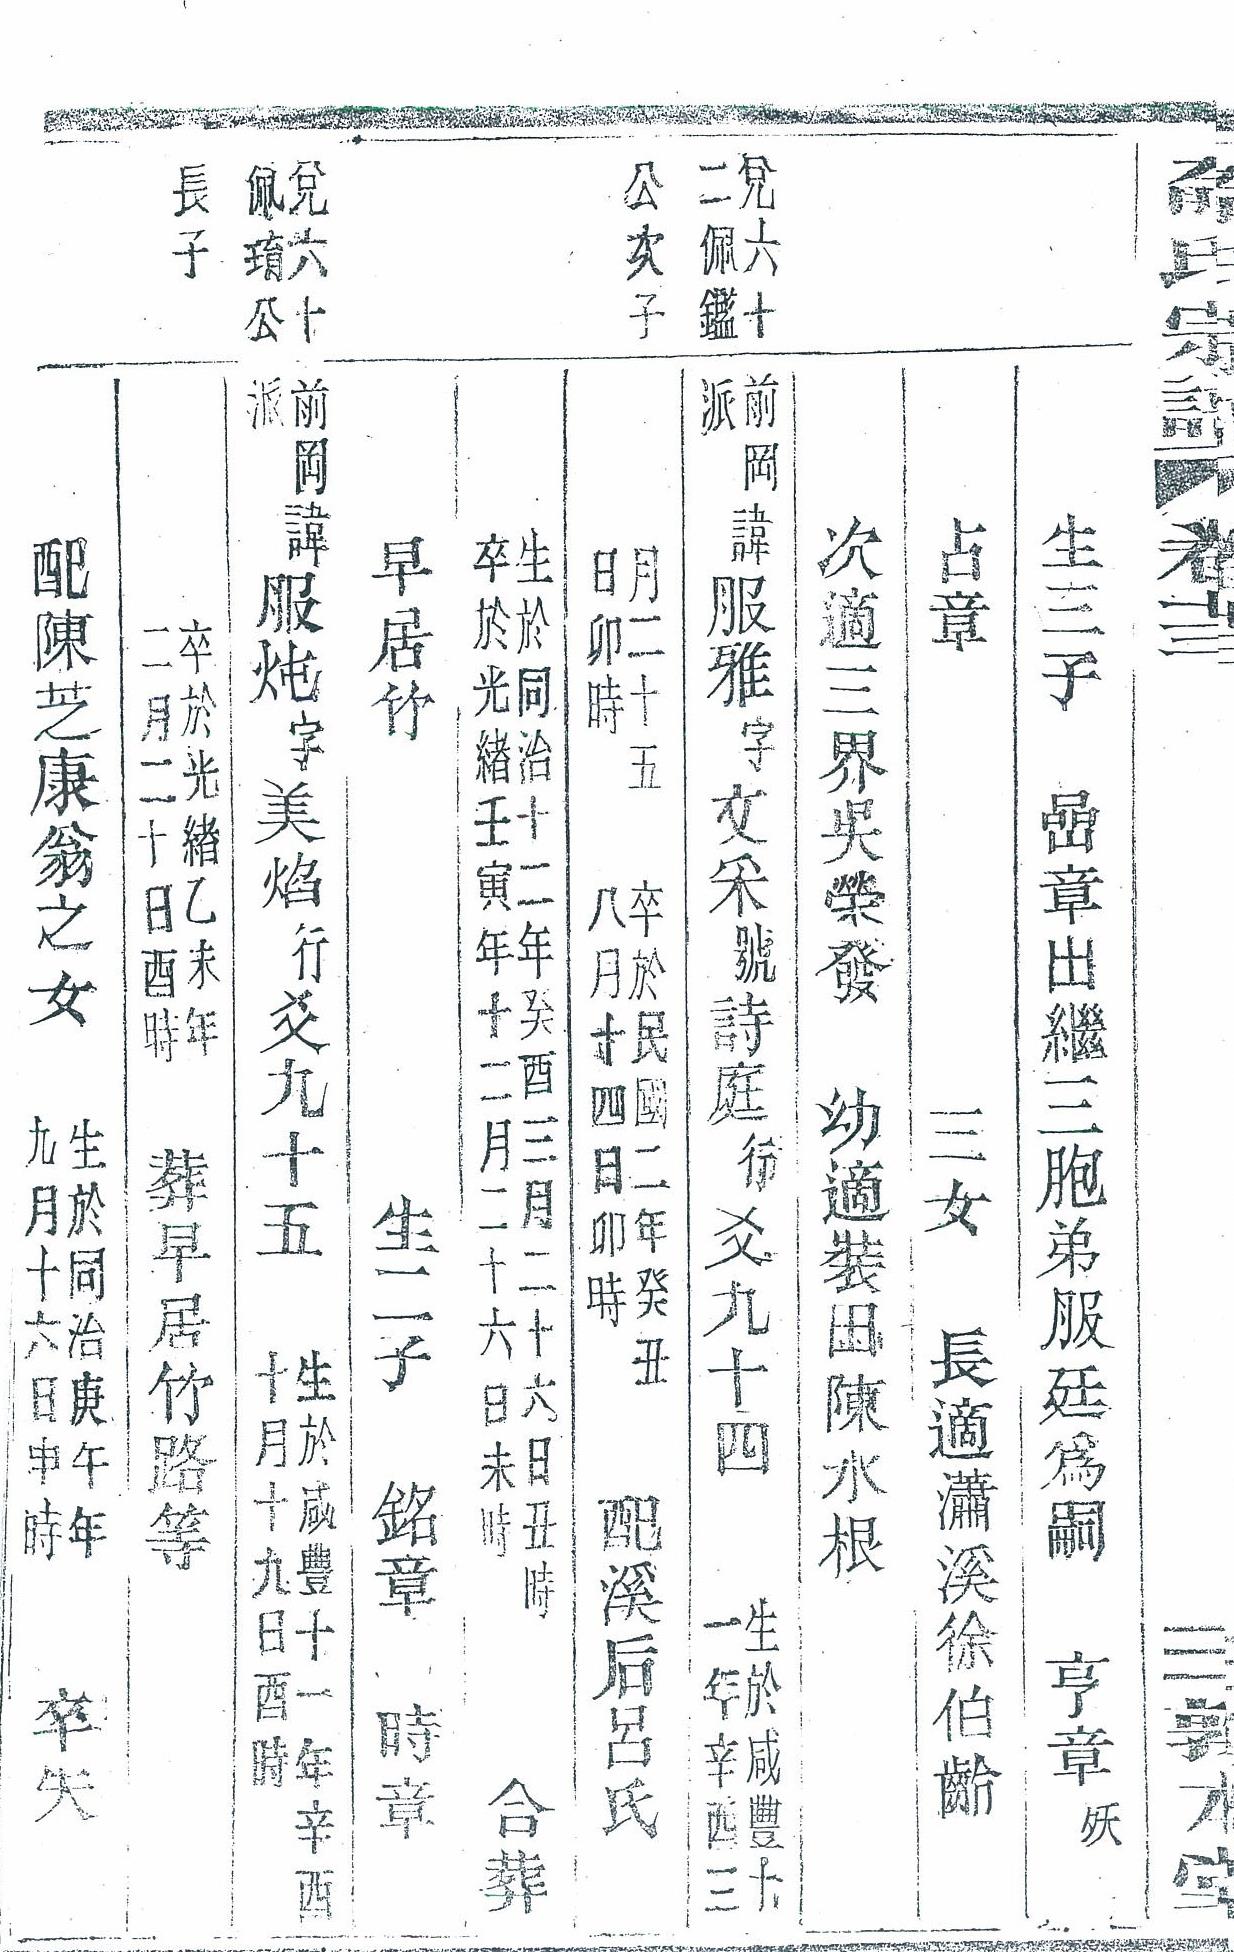 氏宗譜 卷 三 敦本堂
生三子 嵒章出繼三胞弟服廷為嗣 亨章 殀
占章 三女 長適瀟溪徐伯齡
次適三界吳榮發 幼適裝田陳水根
兌六十二佩鑑公次子
前岡派諱服雅字文采號詩庭行爻九十四 生於咸豐十一年辛酉三
月二十五日卯時 卒於民國二年癸丑八月十四日卯時 配溪后呂氏
生於同治十二年癸酉三月二十六日丑時
卒於光緒壬寅年十二月二十六日未時 合葬
早居竹 生二子 銘章 時章
兌六十佩堉公長子
前岡派諱服炖字美焰行爻九十五 生於咸豐十一年辛酉十月十九日酉時
卒於光緒乙未年二月二十日酉時 葬早居竹路等
配陳芝康翁之女 生於同治庚午年九月十六日申時 卒失